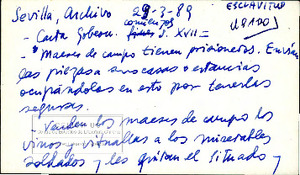 Sevilla, Archivo 29-3-89
ESCLAVITUD
URADO
comienzos
- Carta Gobern. fines S. XVII =
- "Maeses de campo tienen prisioneros. Envían
las piezas a sus casas o estancias
ocupándolos en esto por tenerlas
seguras.
- Venden los maeses de campo los
vinos y vituallas a los miserables
soldados y les quitan el situado y